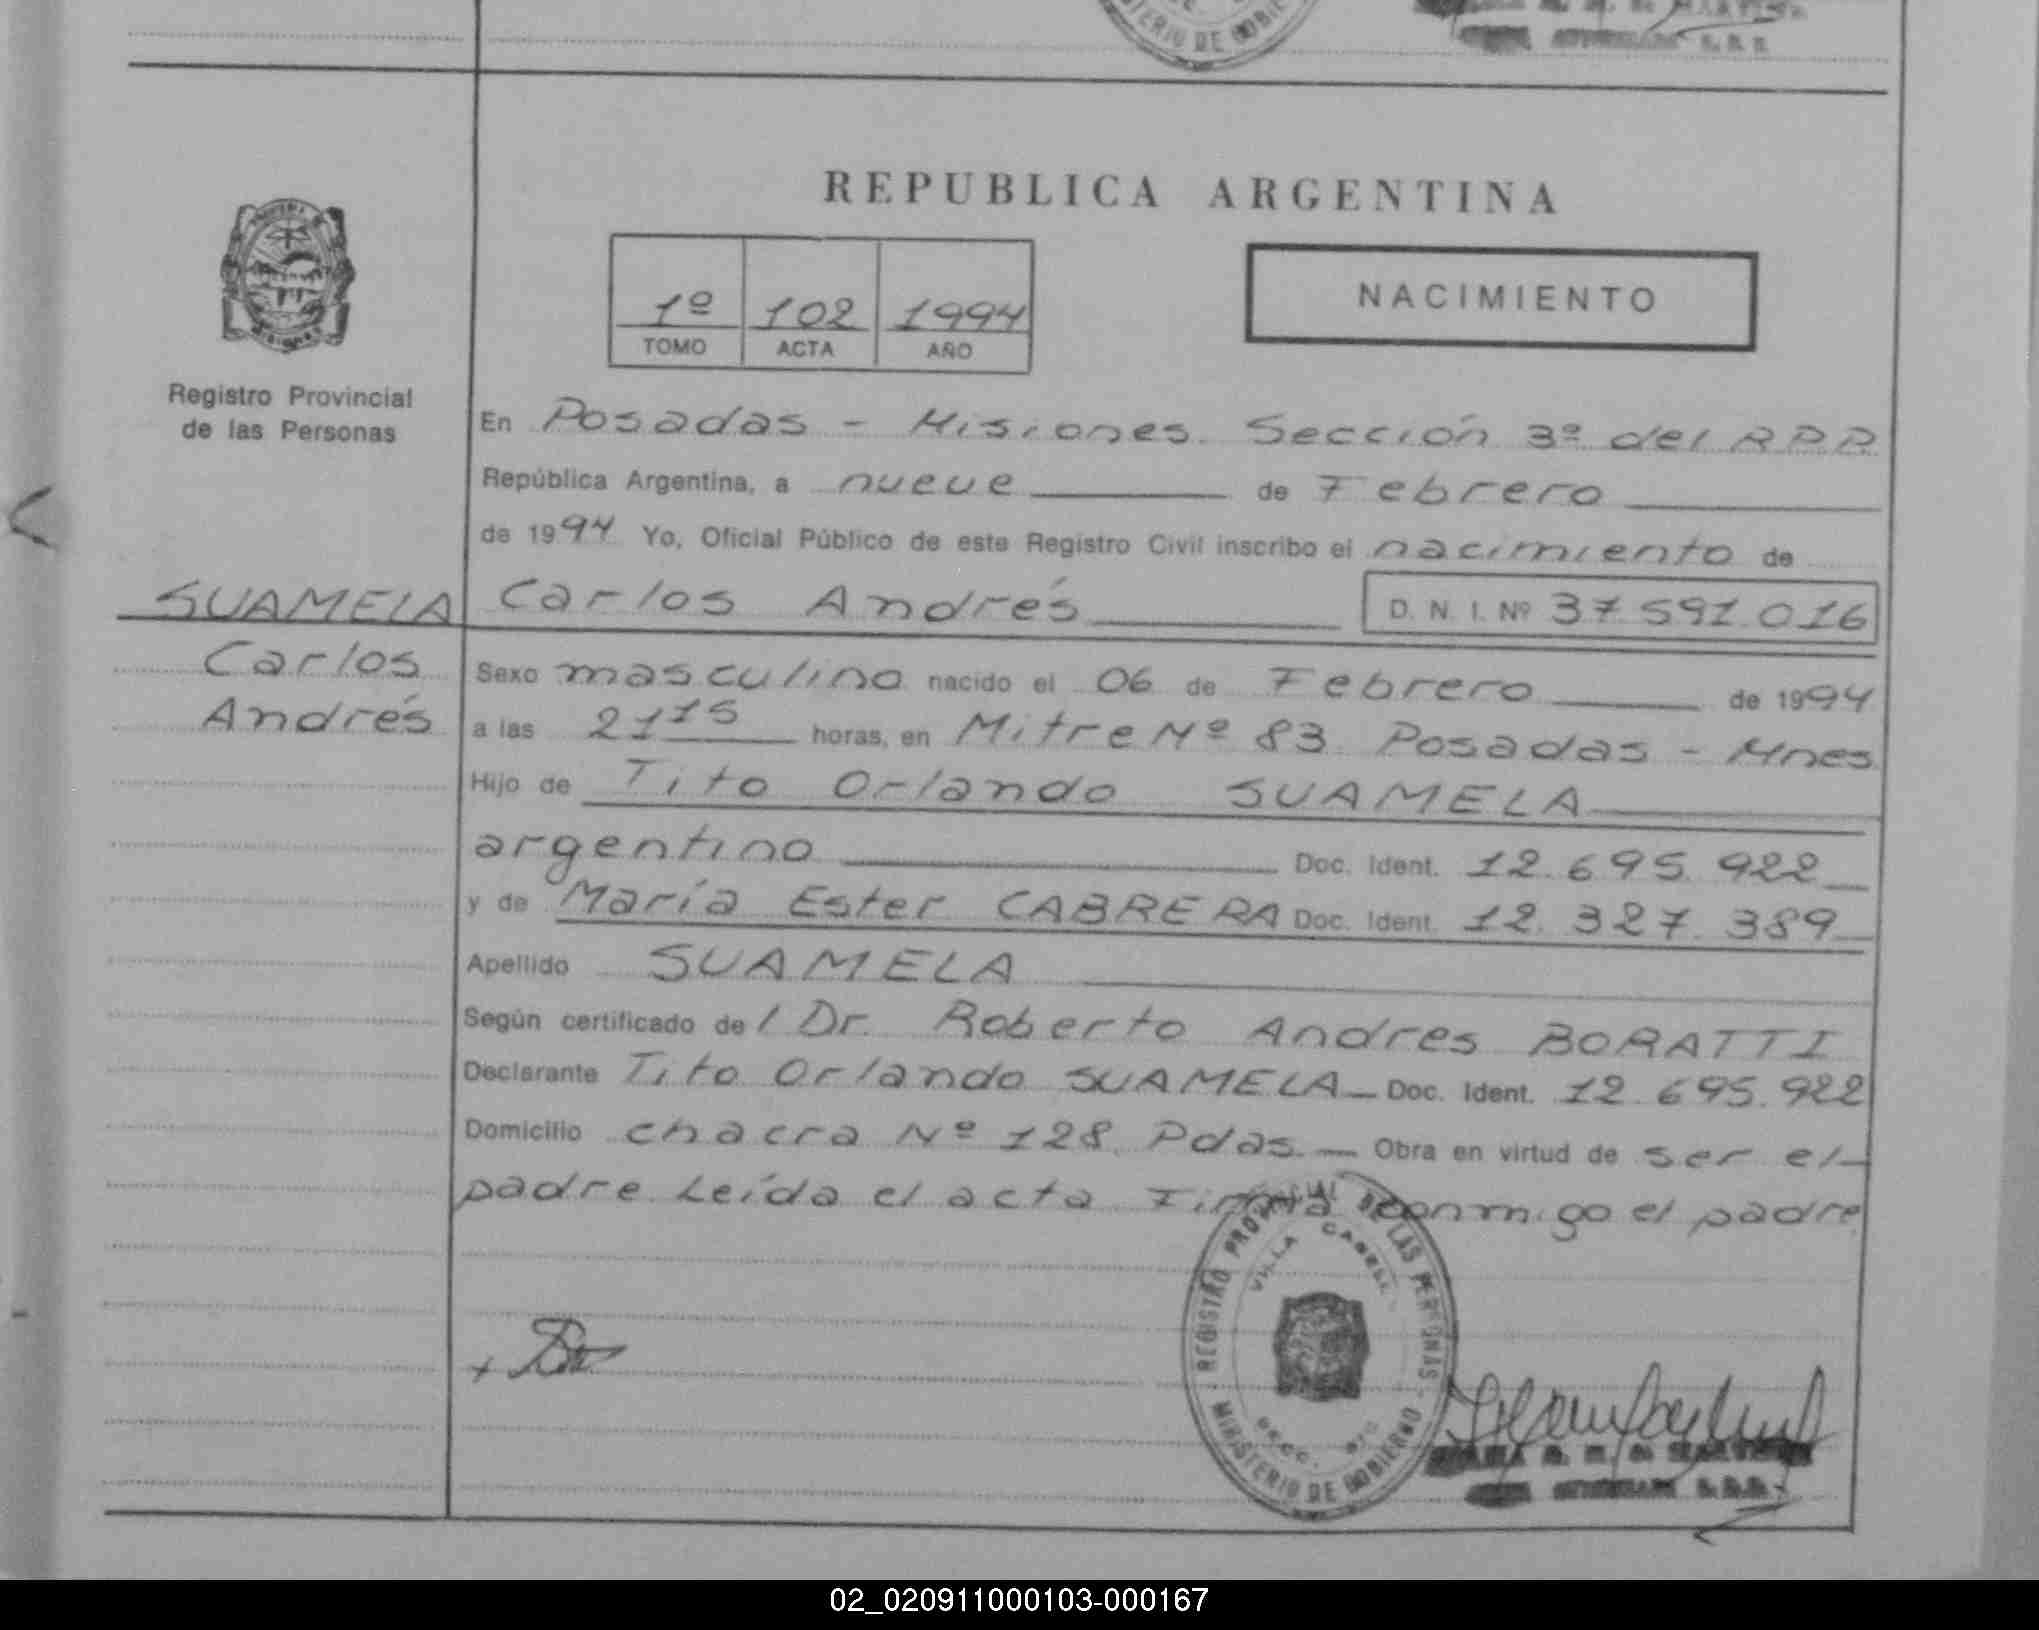 TERIO DE GOBIE
REPUBLICA ARGENTINA
1º 102 1994
TOMO ACTA AÑO
NACIMIENTO
Registro Provincial
de las Personas
En Posadas - Misiones. Sección 3ª del R.P.P.
República Argentina, a nueve de Febrero
de 1994 Yo, Oficial Público de este Registro Civil inscribo el nacimiento de
SUAMELA Carlos Andrés D. N. I. Nº 37.591.016
Carlos
Andrés
Sexo masculino nacido el 06 de Febrero de 1994
a las 21 15 horas, en Mitre Nº 83 Posadas - Mnes
Hijo de Tito Orlando SUAMELA
argentino Doc. Ident. 12.695.922
y de María Ester CABRERA Doc. Ident. 12.327.389
Apellido SUAMELA
Según certificado del Dr. Roberto Andres BORATTI
Declarante Tito Orlando SUAMELA Doc. Ident. 12.695.922
Domicilio chacra Nº 128. Pdas. Obra en virtud de ser el
padre. Leída el acta Firma conmigo el padre
REGISTRO PROVINCIAL DE LAS PERSONAS
VILLA CABELL
MINISTERIO DE GOBIERNO
02_020911000103-000167